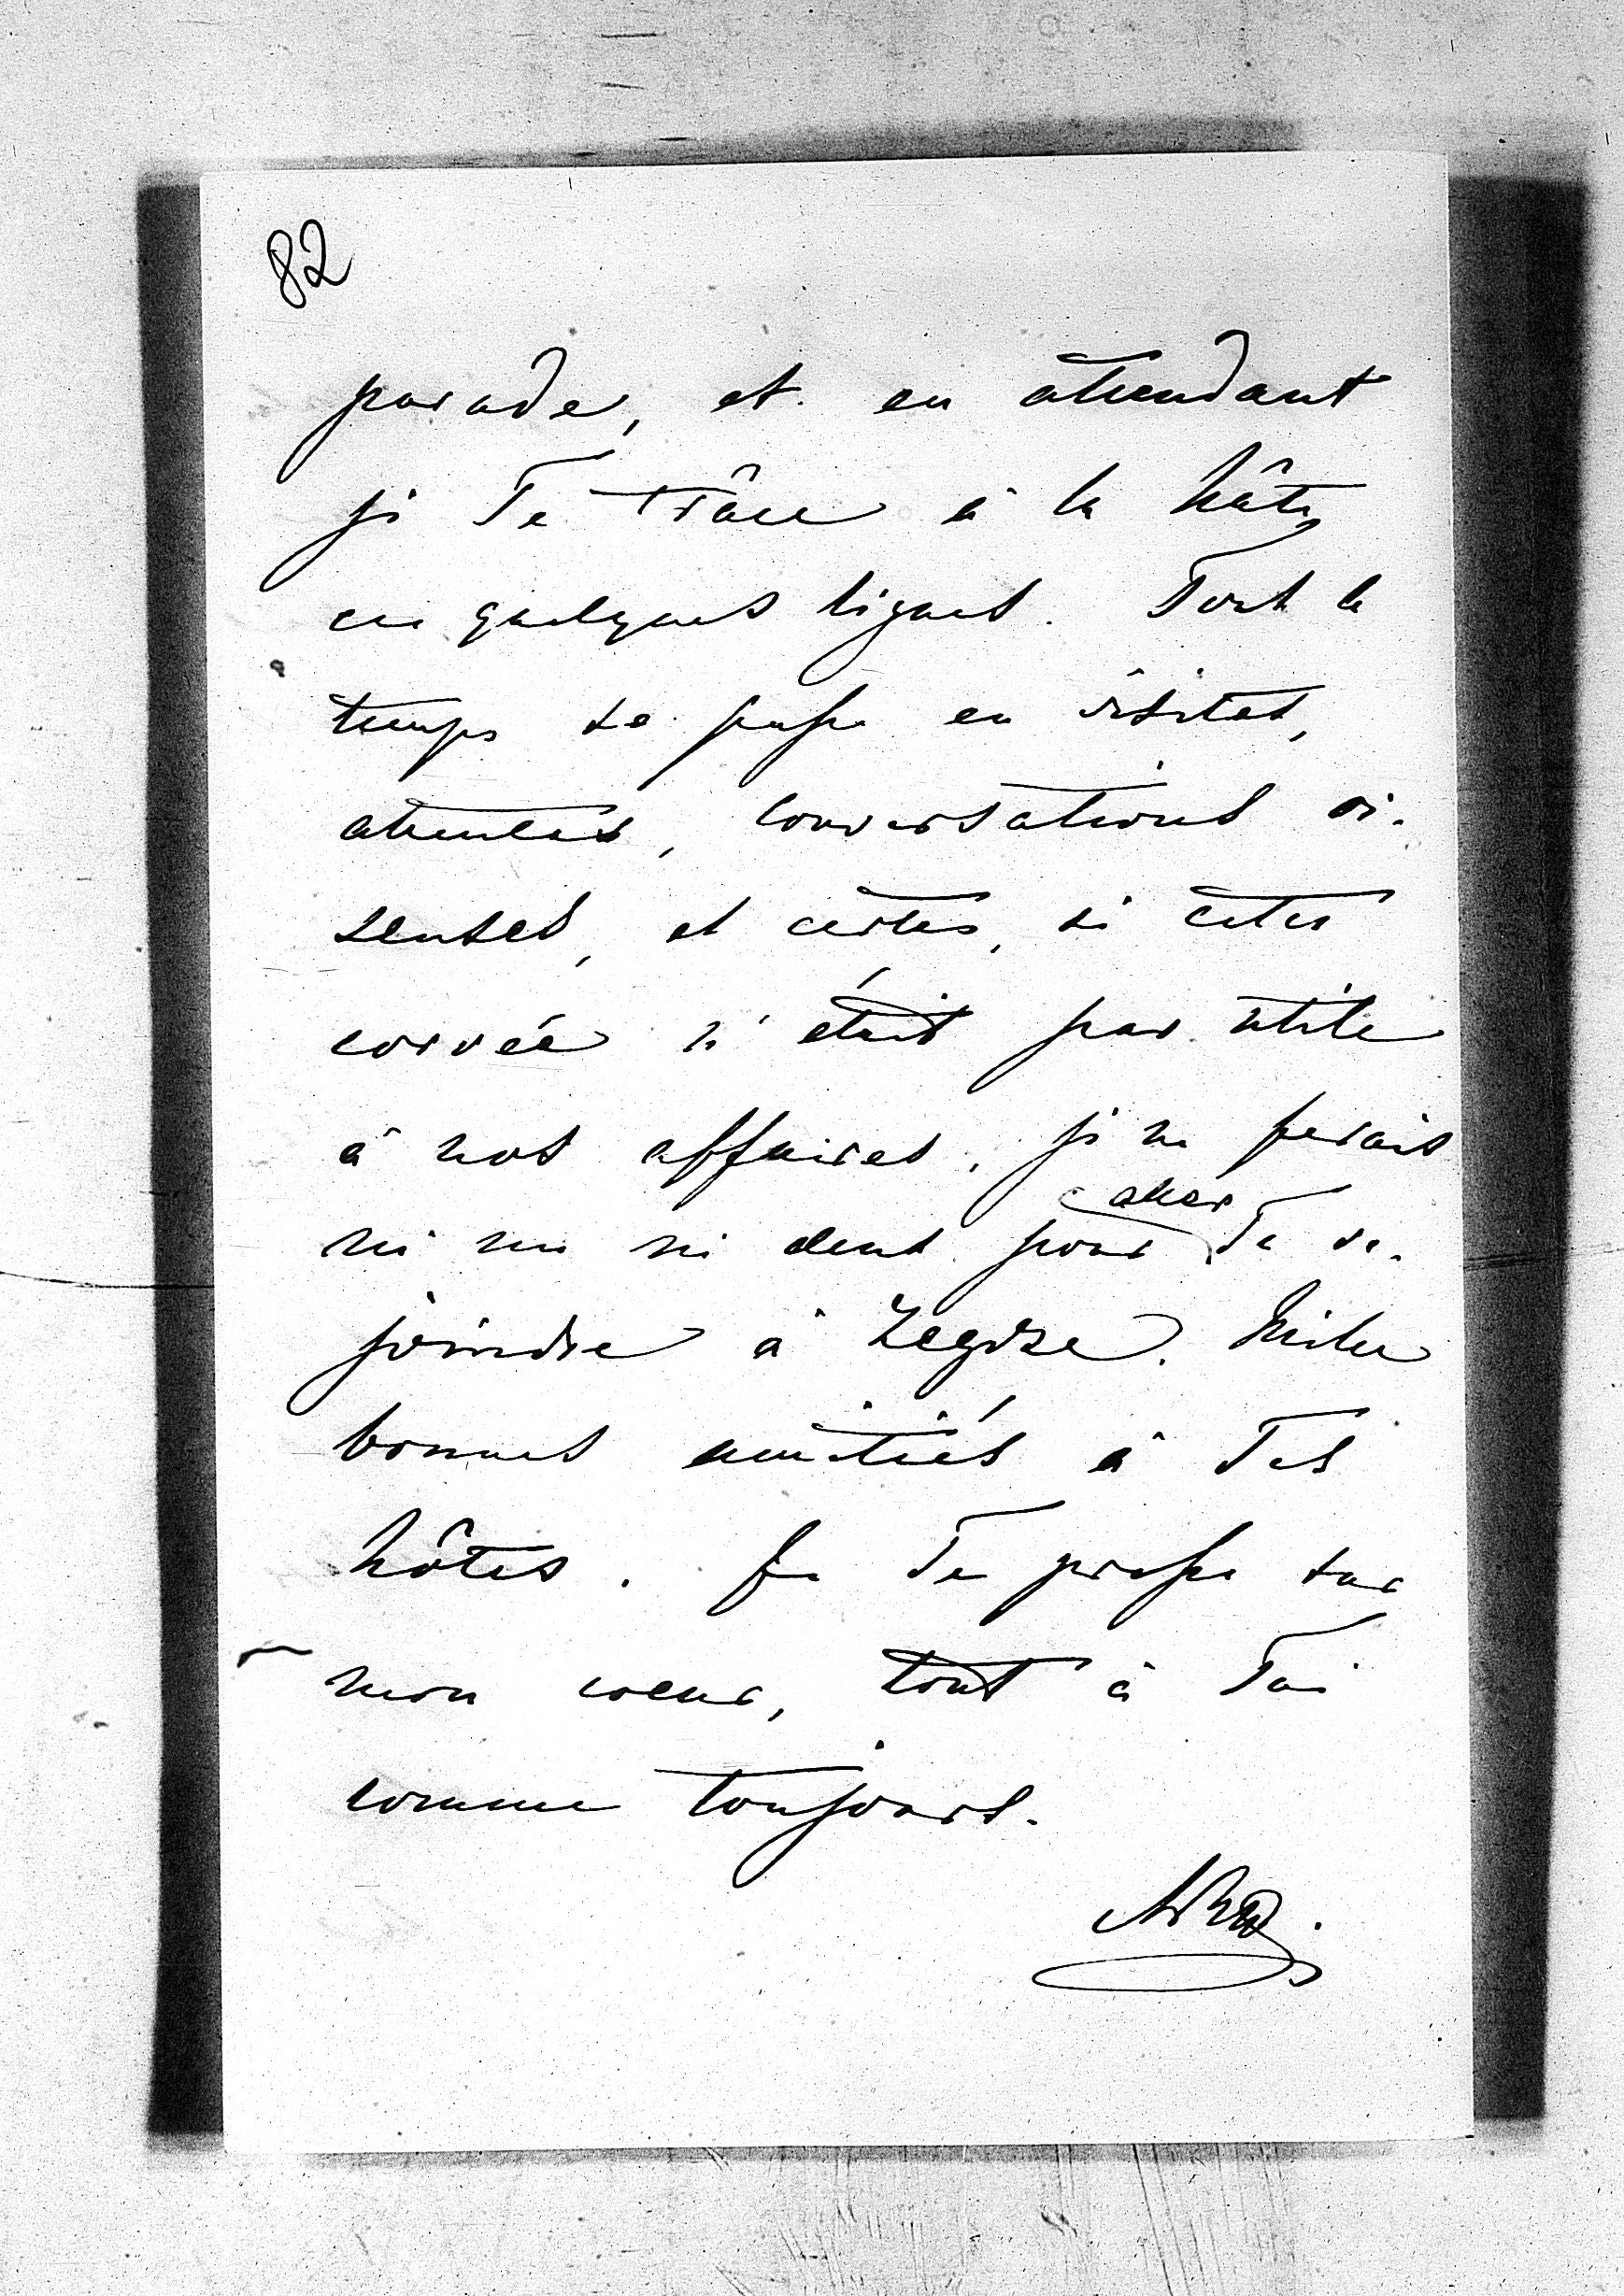 82
parade, et en attendant
je Te trâce à la hâte
ces quelques lignes. Tout le
temps se passe en visites,
attentes, conversations oi-
seuses, et certes, si cette
corvée n'était pas utile
à nos affaires, je ne ferais
ni un ni deux pour aller Te re-
joindre à Zegrze. Milles
bonnes amitiés à Tes
hôtes. Je Te presse sur
mon coeur, tout à Toi
comme toujours.